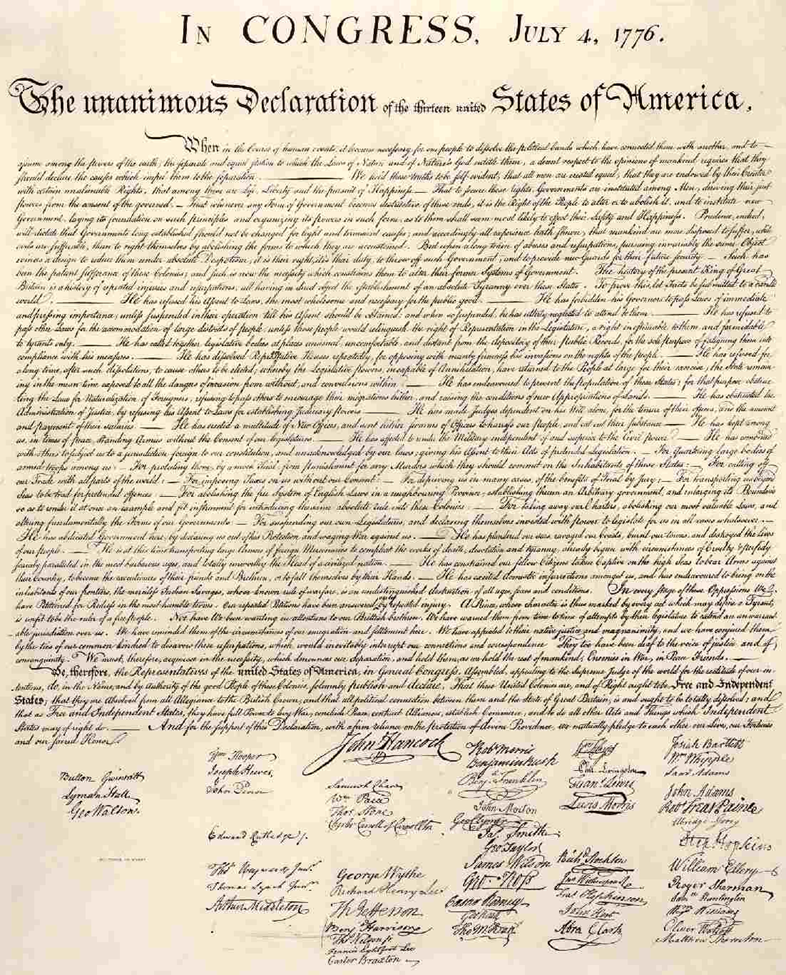 IN CONGRESS, JULY 4, 1776.
The unanimous Declaration of the thirteen united States of America,
When in the Course of human events, it becomes necessary for one people to dissolve the political bands which have connected them with another, and to
assume among the powers of the earth, the separate and equal station to which the Laws of Nature and of Nature's God entitle them, a decent respect to the opinions of mankind requires that they
should declare the causes which impel them to the separation. — We hold these truths to be self-evident, that all men are created equal, that they are endowed by their Creator
with certain unalienable Rights, that among these are Life, Liberty and the pursuit of Happiness. — That to secure these rights, Governments are instituted among Men, deriving their just
powers from the consent of the governed, — That whenever any Form of Government becomes destructive of these ends, it is the Right of the People to alter or to abolish it, and to institute new
Government, laying its foundation on such principles and organizing its powers in such form, as to them shall seem most likely to effect their Safety and Happiness. Prudence, indeed,
will dictate that Governments long established should not be changed for light and transient causes; and accordingly all experience hath shewn, that mankind are more disposed to suffer, while
evils are sufferable, than to right themselves by abolishing the forms to which they are accustomed. But when a long train of abuses and usurpations, pursuing invariably the same Object
evinces a design to reduce them under absolute Despotism, it is their right, it is their duty, to throw off such Government, and to provide new Guards for their future security. — Such has
been the patient sufferance of these Colonies; and such is now the necessity which constrains them to alter their former Systems of Government. The history of the present King of Great
Britain is a history of repeated injuries and usurpations, all having in direct object the establishment of an absolute Tyranny over these States. To prove this, let Facts be submitted to a candid
world. — He has refused his Assent to Laws, the most wholesome and necessary for the public good. — He has forbidden his Governors to pass Laws of immediate
and pressing importance, unless suspended in their operation till his Assent should be obtained; and when so suspended, he has utterly neglected to attend to them. — He has refused to
pass other Laws for the accommodation of large districts of people, unless those people would relinquish the right of Representation in the Legislature, a right inestimable to them and formidable
to tyrants only. — He has called together legislative bodies at places unusual, uncomfortable, and distant from the depository of their public Records, for the sole purpose of fatiguing them into
compliance with his measures. — He has dissolved Representative Houses repeatedly, for opposing with manly firmness his invasions on the rights of the people. — He has refused for
a long time, after such dissolutions, to cause others to be elected; whereby the Legislative powers, incapable of Annihilation, have returned to the People at large for their exercise; the State remain-
ing in the mean time exposed to all the dangers of invasion from without, and convulsions within. — He has endeavoured to prevent the population of these States; for that purpose obstruc-
ting the Laws for Naturalization of Foreigners; refusing to pass others to encourage their migrations hither, and raising the conditions of new Appropriations of Lands. — He has obstructed the
Administration of Justice, by refusing his Assent to Laws for establishing Judiciary powers. — He has made Judges dependent on his Will alone, for the tenure of their offices, and the amount
and payment of their salaries. — He has erected a multitude of New Offices, and sent hither swarms of Officers to harrass our people, and eat out their substance. — He has kept among
us, in times of peace, Standing Armies without the Consent of our legislatures. — He has affected to render the Military independent of and superior to the Civil power. — He has combined
with others to subject us to a jurisdiction foreign to our constitution, and unacknowledged by our laws; giving his Assent to their Acts of pretended Legislation: — For Quartering large bodies of
armed troops among us: — For protecting them, by a mock Trial, from punishment for any Murders which they should commit on the Inhabitants of these States: — For cutting off
our Trade with all parts of the world: — For imposing Taxes on us without our Consent: — For depriving us in many cases, of the benefits of Trial by Jury: — For transporting us beyond
Seas to be tried for pretended offences — For abolishing the free System of English Laws in a neighbouring Province, establishing therein an Arbitrary government, and enlarging its Boundaries
so as to render it at once an example and fit instrument for introducing the same absolute rule into these Colonies: — For taking away our Charters, abolishing our most valuable Laws, and
altering fundamentally the Forms of our Governments: — For suspending our own Legislatures, and declaring themselves invested with power to legislate for us in all cases whatsoever. —
He has abdicated Government here, by declaring us out of his Protection and waging War against us. — He has plundered our seas, ravaged our Coasts, burnt our towns, and destroyed the lives
of our people. — He is at this time transporting large Armies of foreign Mercenaries to compleat the works of death, desolation and tyranny, already begun with circumstances of Cruelty & perfidy
scarcely paralleled in the most barbarous ages, and totally unworthy the Head of a civilized nation. — He has constrained our fellow Citizens taken Captive on the high Seas to bear Arms against
their Country, to become the executioners of their friends and Brethren, or to fall themselves by their Hands. — He has excited domestic insurrections amongst us, and has endeavoured to bring on the
inhabitants of our frontiers, the merciless Indian Savages, whose known rule of warfare, is an undistinguished destruction of all ages, sexes and conditions. In every stage of these Oppressions We
have Petitioned for Redress in the most humble terms: Our repeated Petitions have been answered only by repeated injury. A Prince, whose character is thus marked by every act which may define a Tyrant,
is unfit to be the ruler of a free people. Nor have We been wanting in attentions to our Brittish brethren. We have warned them from time to time of attempts by their legislature to extend an unwarrant-
able jurisdiction over us. We have reminded them of the circumstances of our emigration and settlement here. We have appealed to their native justice and magnanimity, and we have conjured them
by the ties of our common kindred to disavow these usurpations, which, would inevitably interrupt our connections and correspondence. They too have been deaf to the voice of justice and of
consanguinity. We must, therefore, acquiesce in the necessity, which denounces our Separation, and hold them, as we hold the rest of mankind, Enemies in War, in Peace Friends. —
We, therefore, the Representatives of the united States of America, in General Congress, Assembled, appealing to the Supreme Judge of the world for the rectitude of our in-
tentions, do, in the Name, and by Authority of the good People of these Colonies, solemnly publish and declare, That these United Colonies are, and of Right ought to be Free and Independent
States; that they are Absolved from all Allegiance to the British Crown, and that all political connection between them and the State of Great Britain, is and ought to be totally dissolved; and
that as Free and Independent States, they have full Power to levy War, conclude Peace, contract Alliances, establish Commerce, and to do all other Acts and Things which Independent
States may of right do. — And for the support of this Declaration, with a firm reliance on the protection of divine Providence, we mutually pledge to each other our Lives, our Fortunes
and our sacred Honor.
Button Gwinnett
Lyman Hall
Geo Walton.
Wm Hooper
Joseph Hewes,
John Penn
Edward Rutledge.
Thos Heyward Junr.
Thomas Lynch Junr.
Arthur Middleton
John Hancock
Samuel Chase
Wm Paca
Thos Stone
Charles Carroll of Carrollton
George Wythe
Richard Henry Lee
Th Jefferson
Benj Harrison
Thos Nelson jr.
Francis Lightfoot Lee
Carter Braxton
Robt Morris
Benjamin Rush
Benj. Franklin
John Morton
Geo Clymer
Jas. Smith
Geo. Taylor
James Wilson
Geo. Ross
Caesar Rodney
Geo Read
Tho M:Kean
Wm Floyd
Phil. Livingston
Frans. Lewis
Lewis Morris
Richd. Stockton
Jno Witherspoon
Fras. Hopkinson
John Hart
Abra Clark
Josiah Bartlett
Wm Whipple
Saml Adams
John Adams
Robt Treat Paine
Elbridge Gerry
Step. Hopkins
William Ellery
Roger Sherman
Saml Huntington
Wm Williams
Oliver Wolcott
Matthew Thornton